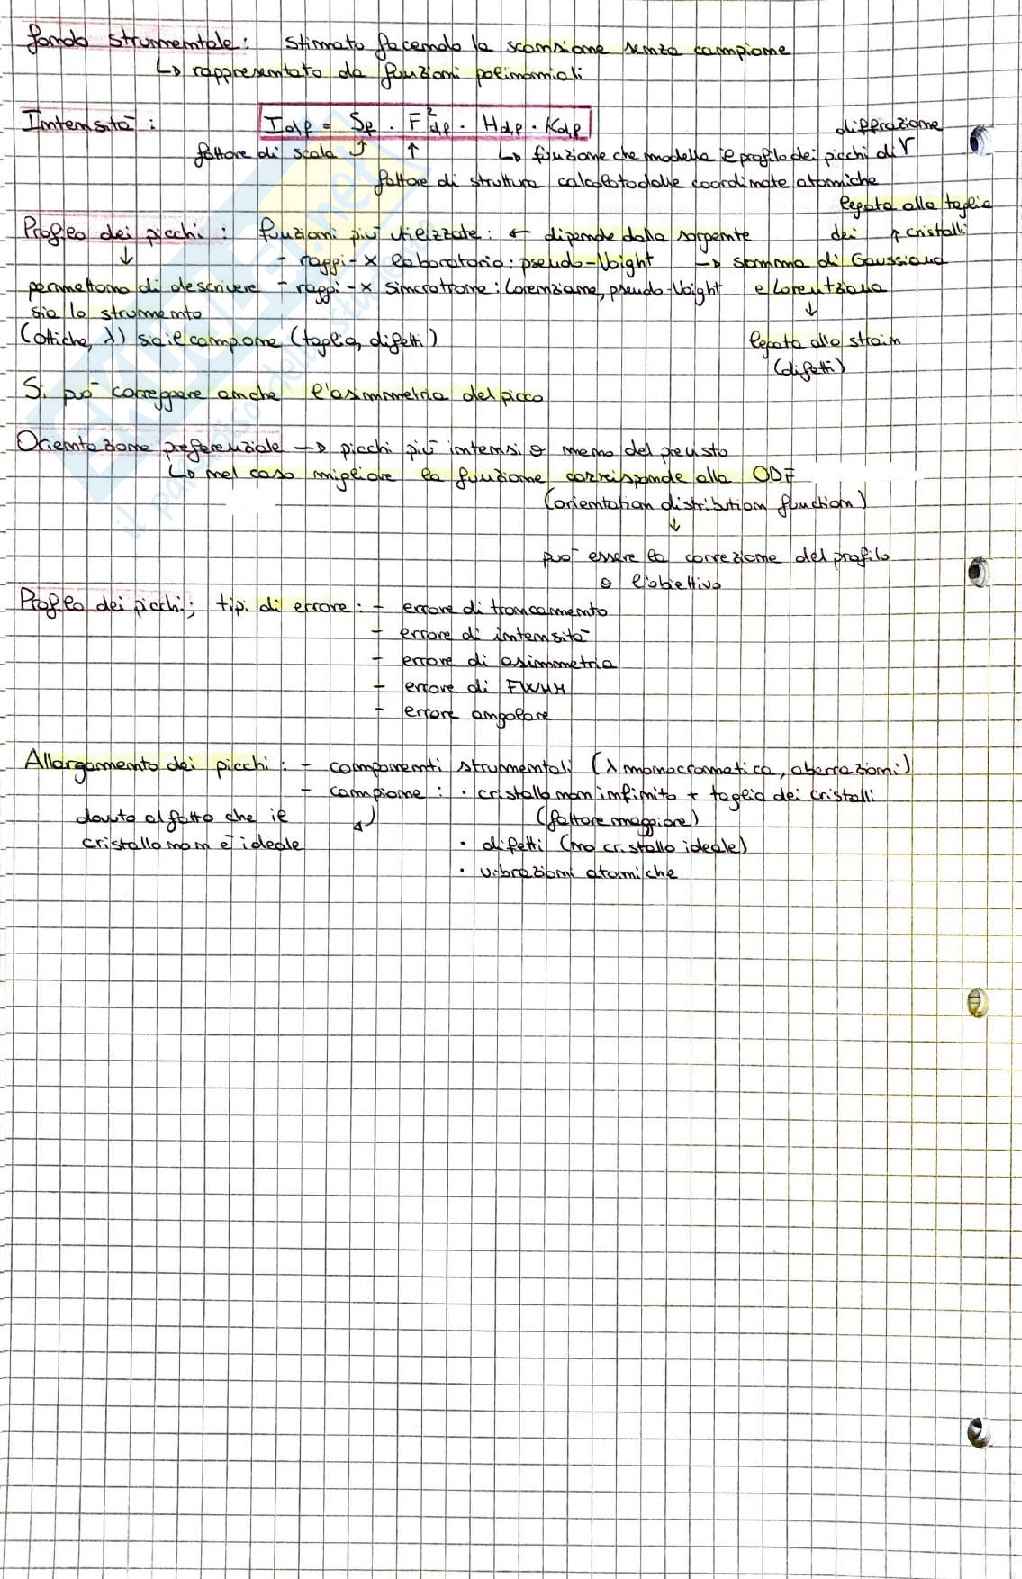 fondo strumentale: stimato facendo la scansione senza campione
↳ rappresentato da funzioni polinomiali
Intensità: Idp = Sp · F²dp · Hdp · Kdp
diffrazione
fattore di scala ↳ funzione che modella il profilo dei picchi di
fattore di struttura calcolato dalle coordinate atomiche
legata alla taglia
Profilo dei picchi: funzioni più utilizzate: ← dipende dalla sorgente
dei cristalli
↓ - raggi-x laboratorio: pseudo-Voight → somma di Gaussiana
permettono di descrivere - raggi-x sincrotrone: Lorenziane, pseudo-Voight e Lorentziana
sia lo strumento ↓
(ottiche, λ) sia il campione (taglia, difetti) legata allo strain
(difetti)
Si può correggere anche l'asimmetria del picco
Orientazione preferenziale → picchi più intensi o meno del previsto
↳ nel caso migliore la funzione corrisponde alla ODF
(orientation distribution function)
↓
può essere la correzione del profilo
o l'obiettivo
Profilo dei picchi; tipi di errore: - errore di troncamento
- errore di intensità
- errore di asimmetria
- errore di FWHM
- errore angolare
Allargamento dei picchi: - componenti strumentali (λ monocromatica, aberrazioni)
- campione: · cristallo non infinito + taglia dei cristalli
dovuto al fatto che il (fattore maggiore)
cristallo non è ideale · difetti (no cristallo ideale)
· vibrazioni atomiche